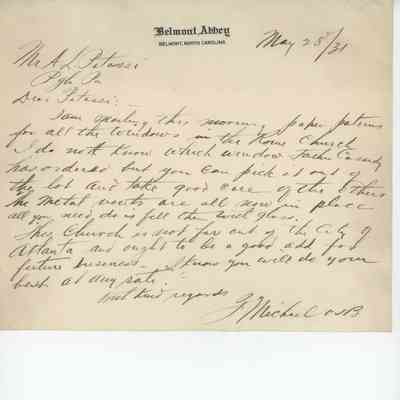 Belmont Abbey
BELMONT, NORTH CAROLINA
May 25/31
Mr A L Pitassi
Pgh Pa
Dear Pitassi:-
I am sending this morning paper paterns
for all the windows in the Church
I do not know which window Father Cassidy
has ordered but you can pick it out of
the lot and take good care of the others
The metal vents are all in place
all you need do is fill them with glass.
This Church is not far out of the City of
Atlanta and ought to be a good add for
future business. I know you will do your
best at any rate.
with kind regards
F Michael OSB